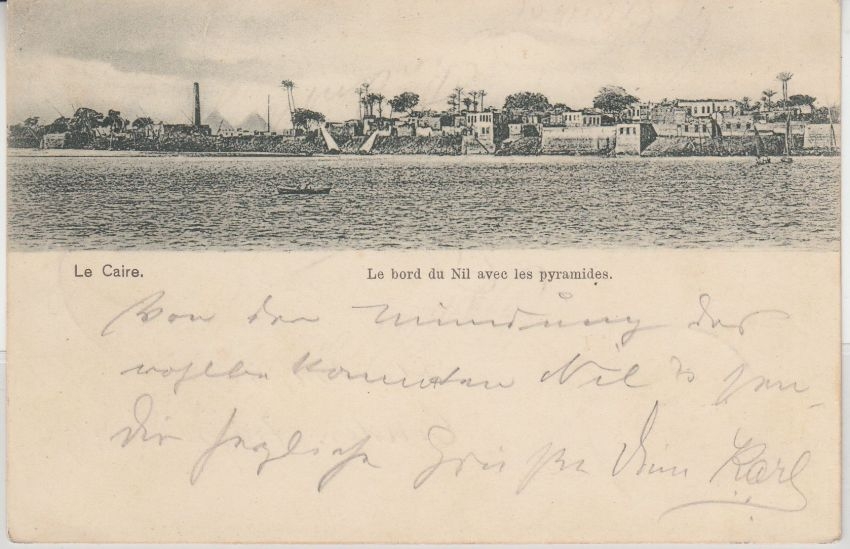 Le Caire.
Le bord du Nil avec les pyramides.
Von der Mündung des
wohlbekannten Nil
Dir herzliche Grüße Dein Karl